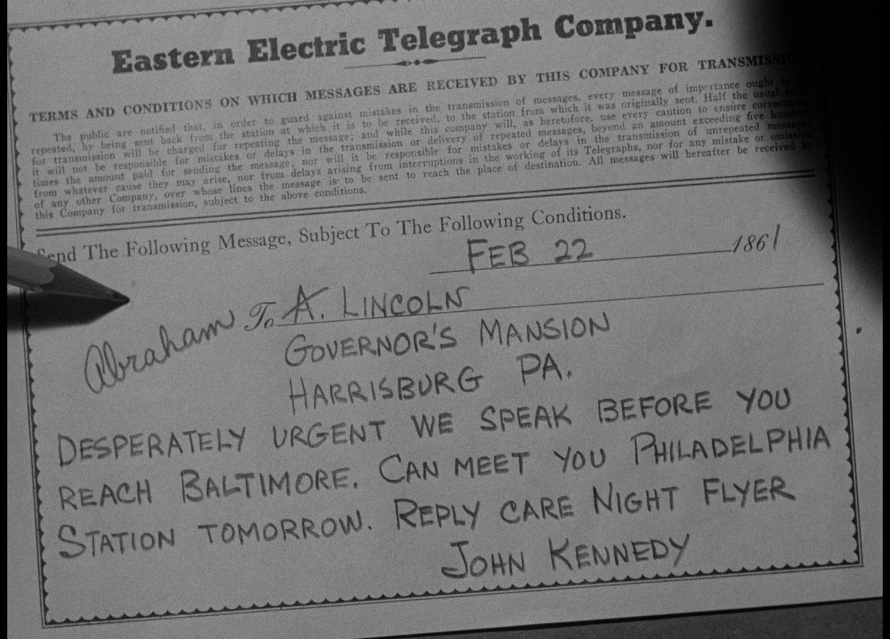 Eastern Electric Telegraph Company.
TERMS AND CONDITIONS ON WHICH MESSAGES ARE RECEIVED BY THIS COMPANY FOR
The public are notified that, in order to guard against mistakes in the transmission of messages, every message of importance ought to
repeated, by being sent back from the station at which it is to be received, to the station from which it was originally sent. Half the usual
for transmission will be charged for repeating the message; and while this company will, as heretofore, use every caution to ensure
it will not be responsible for mistakes or delays in the transmission or delivery of repeated messages, beyond an amount exceeding five
times the amount paid for sending the message; nor will it be responsible for mistakes or delays in the transmission of unrepeated
from whatever cause they may arise, nor from delays arising from interruptions in the working of its Telegraphs, nor for any mistake or
of any other Company, over whose lines the message is to be sent to reach the place of destination. All messages will hereafter be received by
this Company for transmission, subject to the above conditions.
Send The Following Message, Subject To The Following Conditions.
FEB 22 1861
Abraham To A. LINCOLN
GOVERNOR'S MANSION
HARRISBURG PA.
DESPERATELY URGENT WE SPEAK BEFORE YOU
REACH BALTIMORE. CAN MEET YOU PHILADELPHIA
STATION TOMORROW. REPLY CARE NIGHT FLYER
JOHN KENNEDY